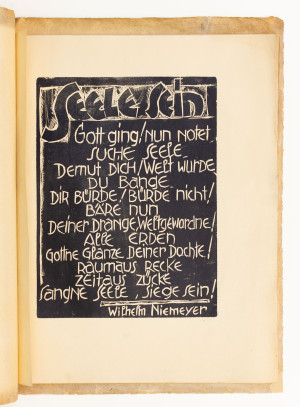 SEELE SEIN
Gott ging! nun notet
SUCHE SEELE
Demut Dich! Welt wurde
DU BANGE
DIR BÜRDE! BÜRDE nicht!
BÄRE nun
Deiner Drange, Weltgewordne!
ALLE ERDEN
Gotthe Glänze Deiner Dochte!
RAUMAUS RECKE
ZEITAUS ZÜCKE
SANGNE SEELE, SIEGE sein!
Wilhelm Niemeyer